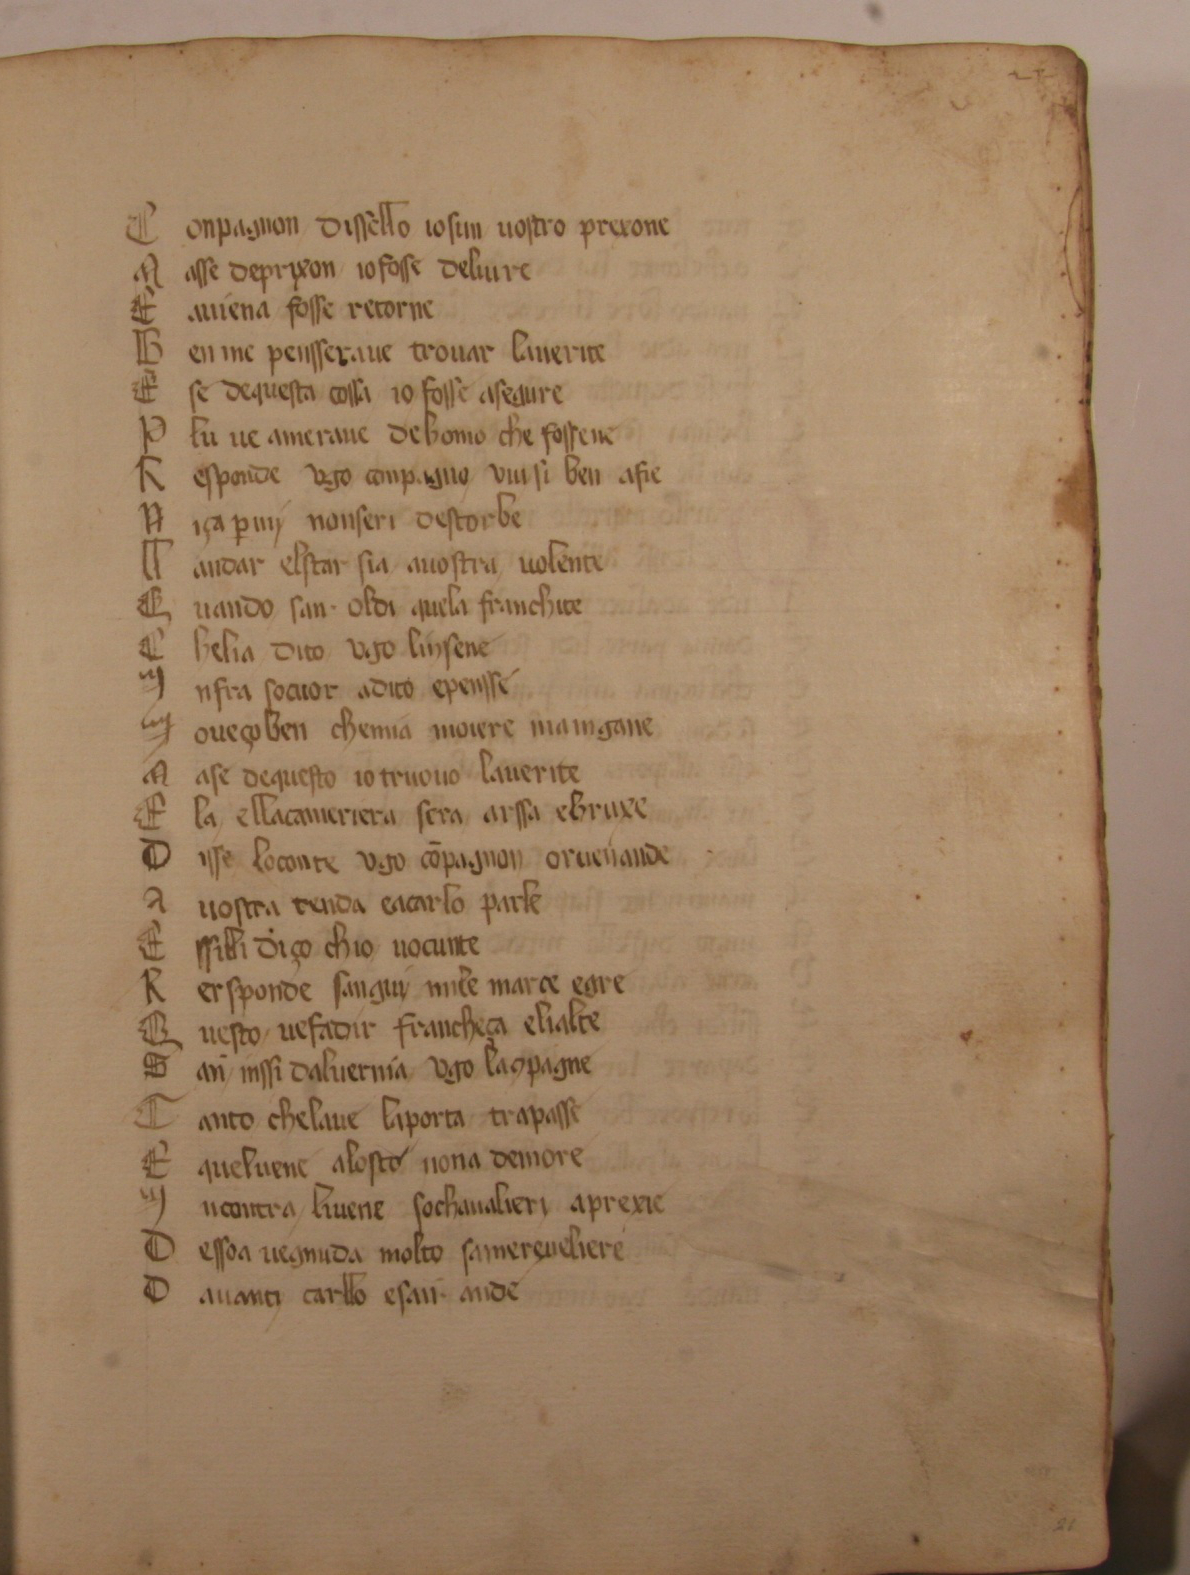 C onpagnon dissello io sun uostro prexone
M asse deprixon io fosse deliure
E auiena fosse retorne
B en me pensseraue trouar lauerite
E se dequesta cossa io fosse asegure
P lu ue ameraue dehomo che fossene
R esponde vgo conpagno vui si ben afie
N iça p mi nonseri destorbe
ll andar elstar sia auostra uolente
Q uando san oldi quela franchite
C helia dito vgo linsene
I nfra socuor adito epensse
M oueço ben chemia moiere maingane
M ase dequesto io truouo lauerite
E la ellacameriera sera arssa ebruxe
D isse loconte vgo cōpagnon oruenande
A uostra tenda eacarlo parle
E ssilli diço chio uocunte
R ersponde sanguij mile marce egre
Q uesto uefadir francheça elialte
S an inssi daluernia vgo lanpagne
T anto chelaue laporta trapasse
E queluene alosto nona demore
I ncontra liuene sochaualieri aprexie
D essoa uegnuda molto samereueliere
D auanti carllo esan ande
21